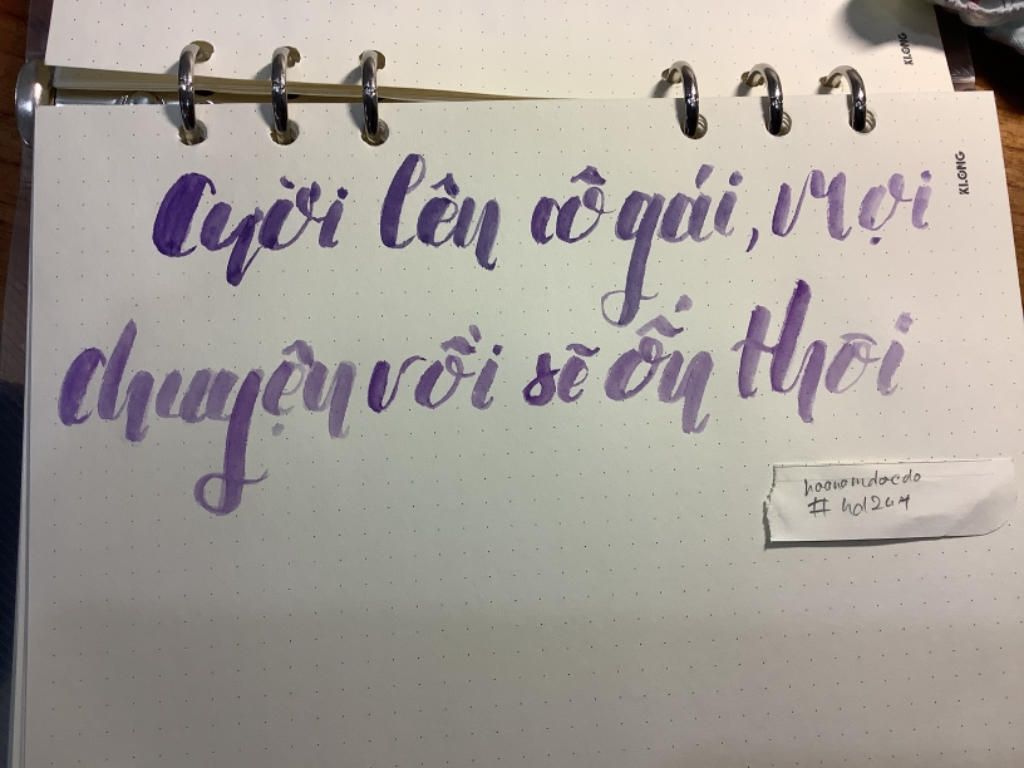 KLONG
KLONG
Cười lên cô gái, Mọi
chuyện rồi sẽ ổn thôi
hoanamdacdo
# hd247